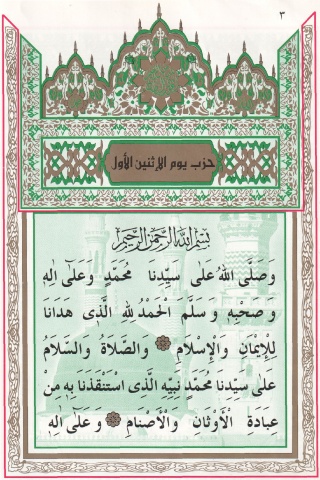 ٣
حزب يوم الإثنين الأول
بِسْمِ اللهِ الرَّحْمٰنِ الرَّحِيمِ
وَصَلَّى اللهُ عَلٰى سَيِّدِنَا مُحَمَّدٍ وَعَلٰى اٰلِهِ
وَصَحْبِهِ وَسَلَّمَ الْحَمْدُ لِلهِ الَّذِى هَدَانَا
لِلْإِيْمَانِ وَالْإِسْلَامِ ۞ وَالصَّلَاةُ وَالسَّلَامُ
عَلٰى سَيِّدِنَا مُحَمَّدٍ نَبِيِّهِ الَّذِى اسْتَنْقَذَنَا بِهِ مِنْ
عِبَادَةِ الْأَوْثَانِ وَالْأَصْنَامِ ۞ وَعَلٰى اٰلِهِ